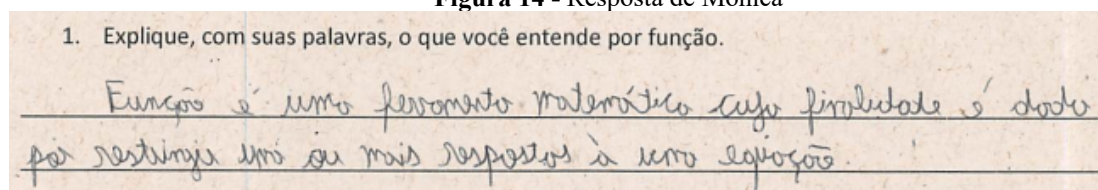 Figura 14 - Resposta de Mônica
1. Explique, com suas palavras, o que você entende por função.
Função é uma ferramenta matemática cuja finalidade é dada
por restringir uma ou mais respostas à uma equação.